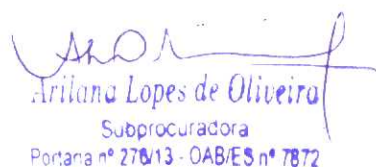 Arilana Lopes de Oliveira
Subprocuradora
Portaria nº 276/13 - OAB/ES nº 7872